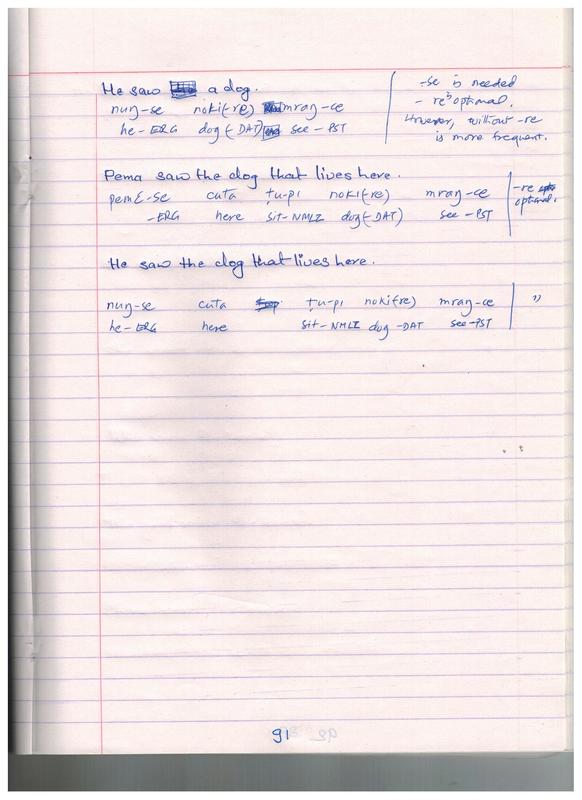 He saw a dog.
nuŋ-se noki(re) mraŋ-ce
he-ERG dog(-DAT) see-PST
-se is needed
- re is optional.
However, without -re
is more frequent.
Pema saw the dog that lives here.
pemɛ-se cuta ṭu-pı noki(re) mraŋ-ce
-ERG here sit-NMLZ dog(-DAT) see-PST
-re
optional.
He saw the dog that lives here.
nuŋ-se cuta ṭu-pı noki(re) mraŋ-ce
he-ERG here sit-NMLZ dog-DAT see-PST
"
91